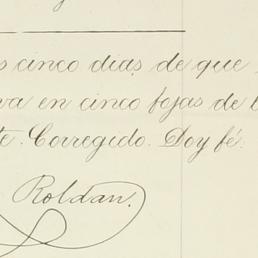 s cinco dias de que
va en cinco fojas de l
te. Corregido. Doy fé.
Roldan.